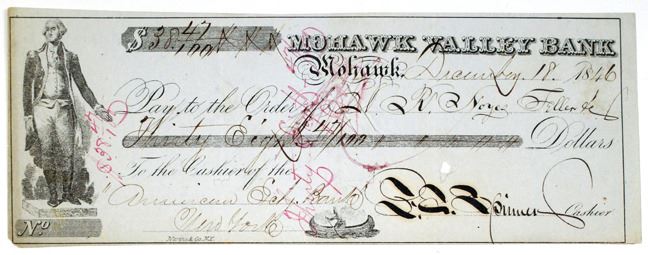 $38 47/100 MOHAWK VALLEY BANK
Mohawk. December 18, 1846
Pay to the Order of R. Noyes Teller &c
Thirty Eight 47/100 Dollars
To the Cashier of the
American Exch. Bank
New York
Cashier
No.